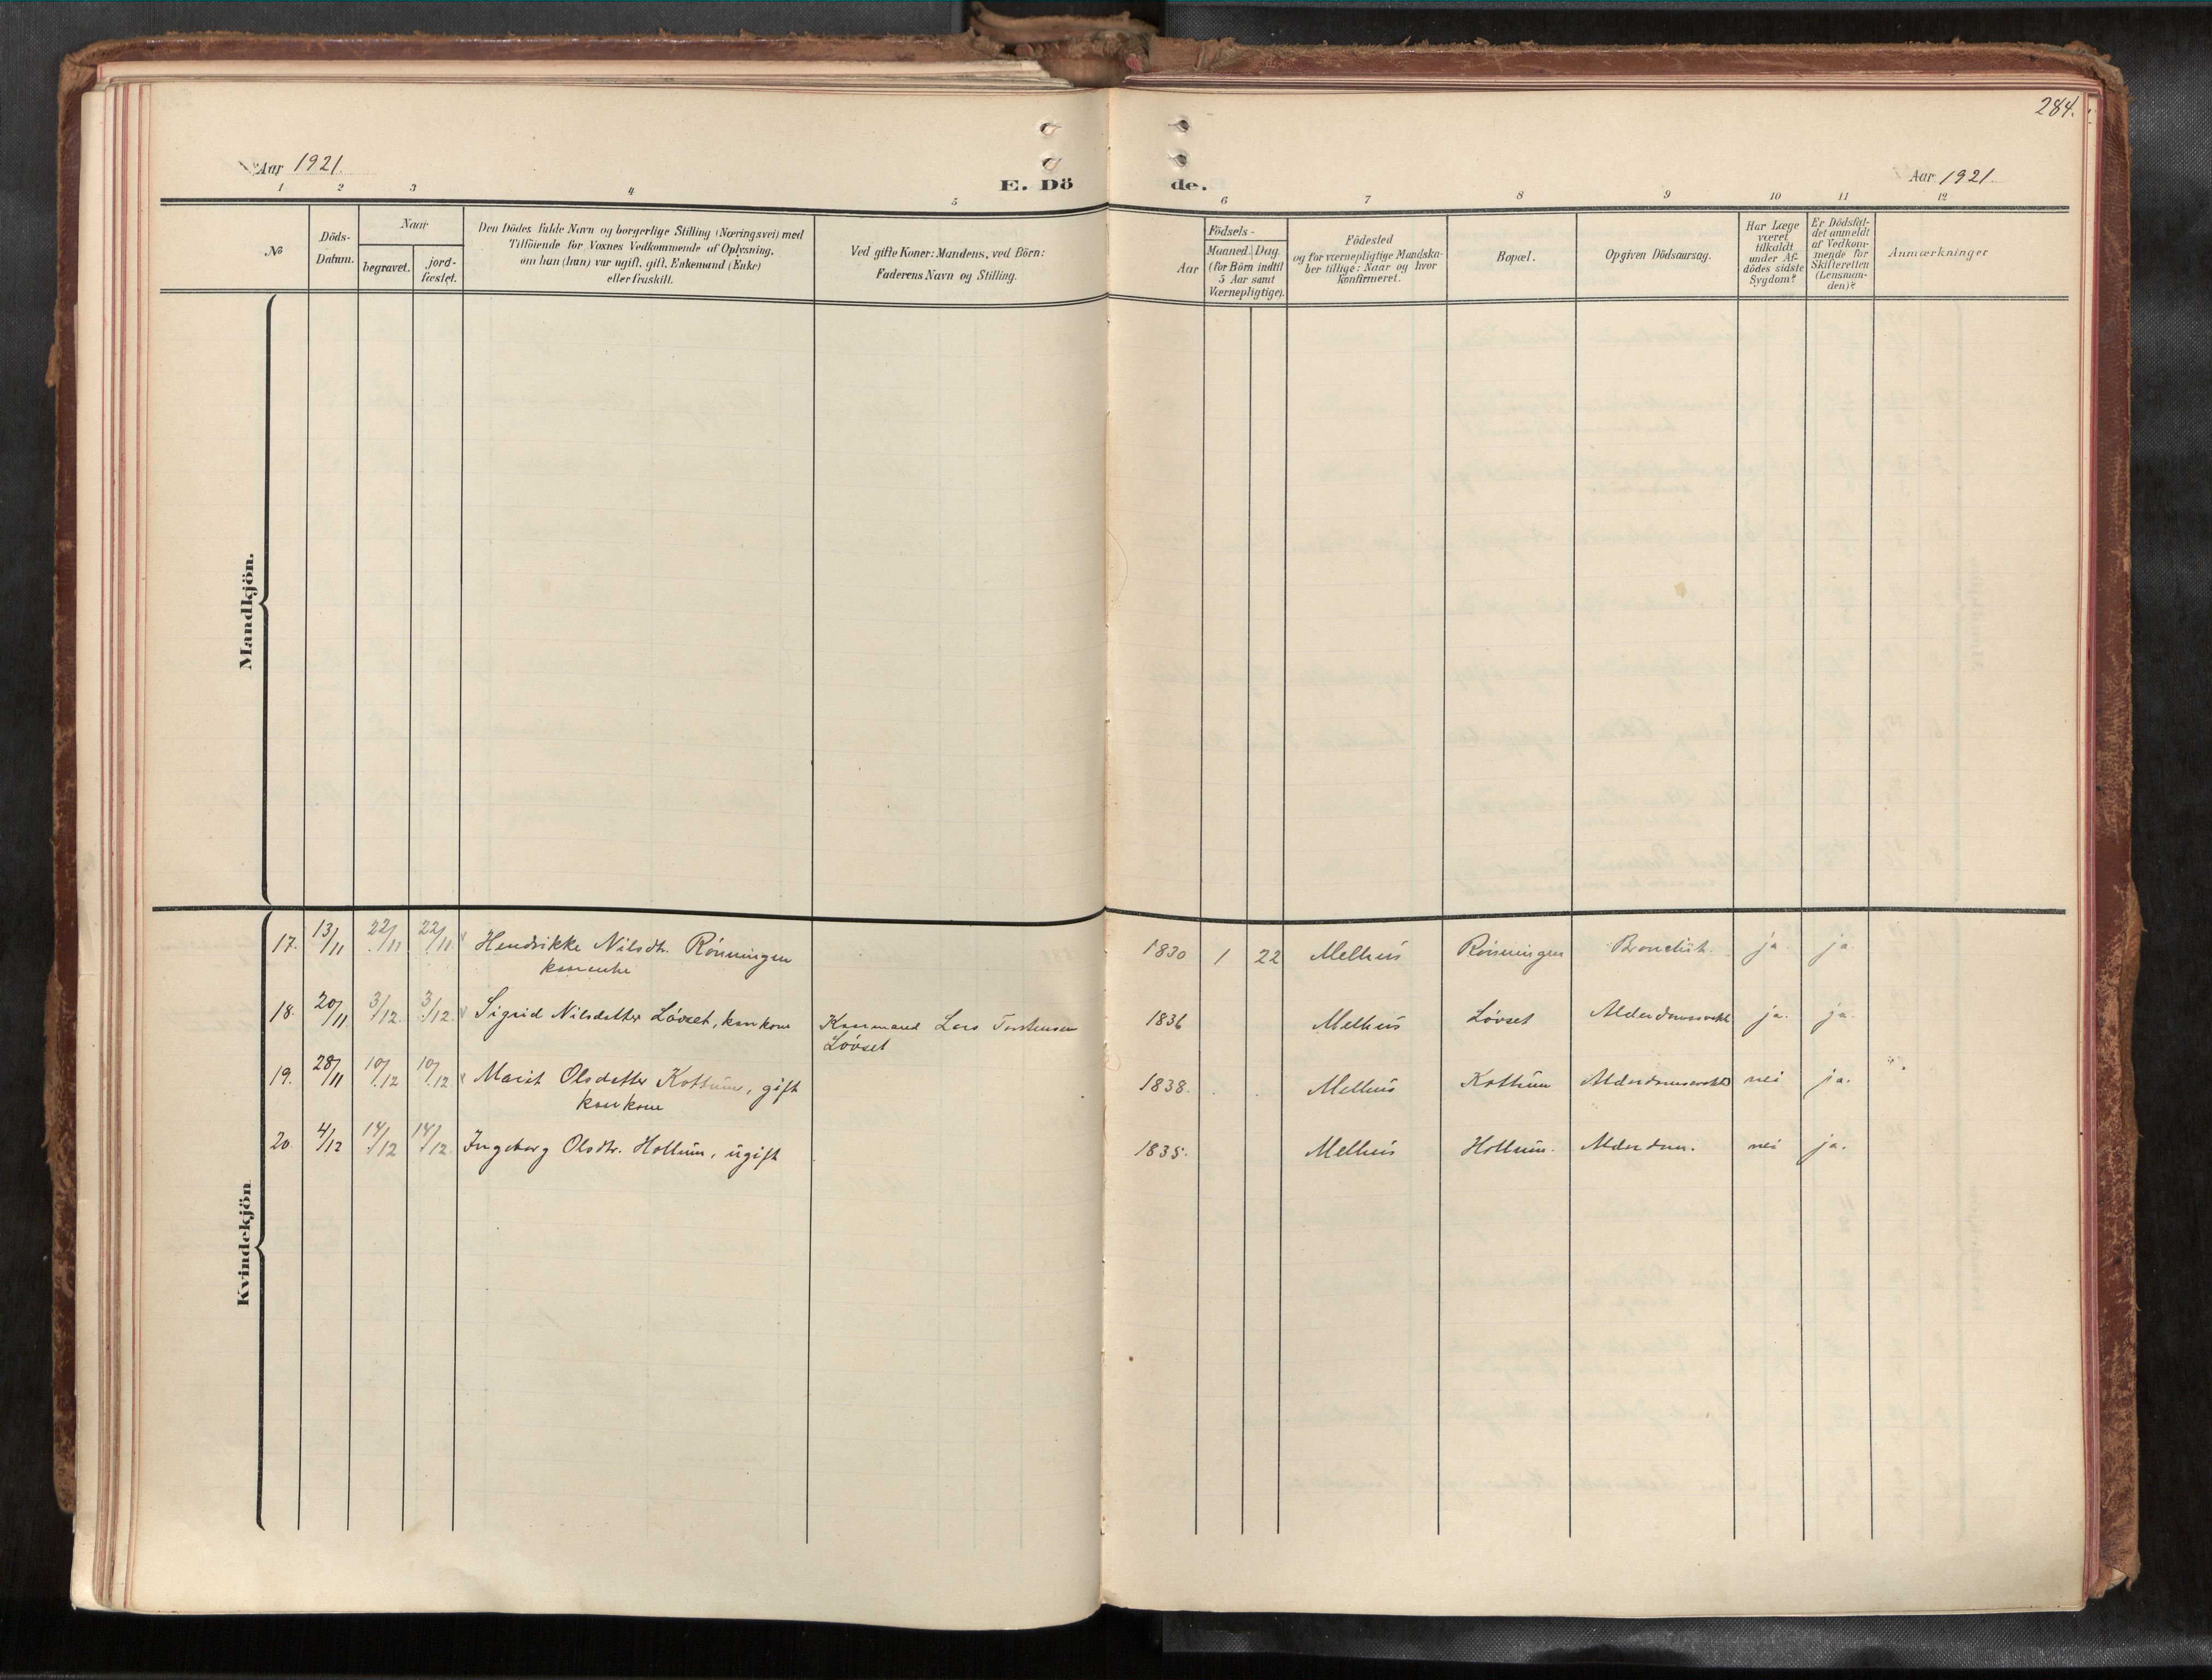 284.
Aar 1921.
E. Dö
de.
Aar 1921.
1 2 3 4 5 6 7 8 9 10 11 12
No
Döds-
Datum.
Naar
begravet.
jord-
fæstet.
Den Dödes fulde Navn og borgerlige Stilling (Næringsvei) med
Tilföiende for Voxnes Vedkommende af Oplysning,
om han (hun) var ugift, gift, Enkemand (Enke)
eller fraskilt.
Ved gifte Koner: Mandens, ved Börn:
Faderens Navn og Stilling.
Födsels-
Aar
Maaned. Dag.
(for Börn indtil
5 Aar samt
Værnepligtige).
Födested
og for værnepligtige Mandska-
ber tillige: Naar og hvor
konfirmeret.
Bopæl.
Opgiven Dödsaarsag.
Har Læge
været
tilkaldt
under Af-
dödes sidste
Sygdom?
Er Dödsfal-
det anmeldt
af Vedkom-
mende for
Skifteretten
(Lensman-
den)?
Anmærkninger
Mandkjön.
Kvindekjön
17. 13/11 22/11 22/11 Hendrikke Nilsdtr. Rönningen 1830 1 22 Melhus Rönningen ja. ja.
18. 20/11 3/12 3/12 Sigrid Nilsdatter Lövset, Lars Lövset 1836 Melhus Lövset ja. ja.
19. 28/11 10/12 10/12 Marit Olsdatter Kottum, gift 1838. Melhus Kottum nei ja.
20. 4/12 14/12 14/12 Ingeborg Olsdtr. Hollum, ugift 1835. Melhus Hollum. Alderdom. nei ja.